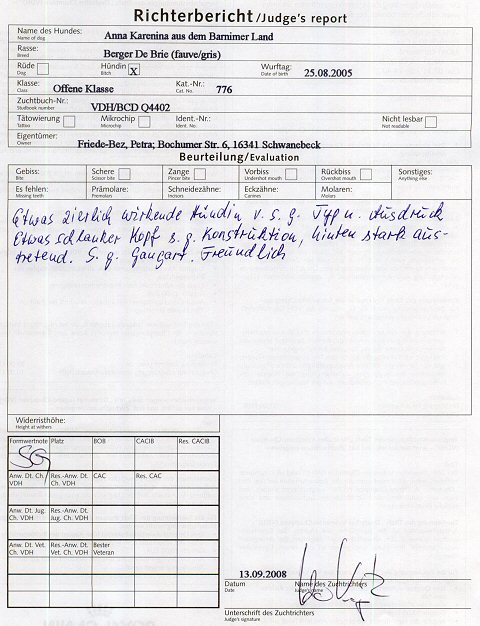 Richterbericht/Judge's report
Name des Hundes: Anna Karenina aus dem Barnimer Land
Name of dog
Rasse: Berger De Brie (fauve/gris)
Breed
Rüde Hündin X Wurftag: 25.08.2005
Dog Bitch Date of birth
Klasse: Offene Klasse Kat.-Nr.: 776
Class Cat. No.
Zuchtbuch-Nr.: VDH/BCD Q4402
Studbook number
Tätowierung Mikrochip Ident.-Nr.: Nicht lesbar
Tattoo Microchip Ident. No. Not readable
Eigentümer: Friede-Bez, Petra; Bochumer Str. 6, 16341 Schwanebeck
Owner
Beurteilung/Evaluation
Gebiss: Schere Zange Vorbiss Rückbiss Sonstiges:
Bite Scissor bite Pincer bite Undershot mouth Overshot mouth Anything else
Es fehlen: Prämolare: Schneidezähne: Eckzähne: Molaren:
Missing teeth Premolars Incisors Canines Molars
Etwas zierlich wirkende Hündin v. s. g. Typ u. Ausdruck
Etwas schlanker Kopf s. g. Konstruktion, hinten stark aus-
tretend. S. g. Gangart. Freundlich
Widerristhöhe:
Height at withers
Formwertnote Platz BOB CACIB Res. CACIB
SG
Anw. Dt. Ch. Res.-Anw. Dt. CAC Res. CAC
VDH Ch. VDH
Anw. Dt. Jug. Res.-Anw. Dt.
Ch. VDH Jug. Ch. VDH
Anw. Dt. Vet. Res.-Anw. Dt. Bester
Ch. VDH Vet. Ch. VDH Veteran
13.09.2008
Datum Name des Zuchtrichters
Date Judge's name
Unterschrift des Zuchtrichters
Judge's signature